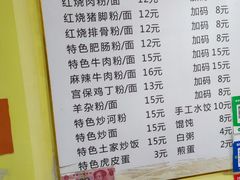 红烧肉粉/面 12元 加码 8元
红烧猪脚粉/面 12元 加码 8元
红烧排骨粉/面 12元 加码 8元
特色肥肠粉/面 15元 加码 8元
特色牛肉粉/面 15元 加码
麻辣牛肉粉/面 16元 加码
宫保鸡丁粉/面 13元 加码
羊杂粉/面 15元 手工水饺 10元
特色炒河粉 15元 馄饨 8元
特色炒面 15元 白粥 4元
特色土家炒饭 15元 煎蛋 2元
特色虎皮蛋 3元